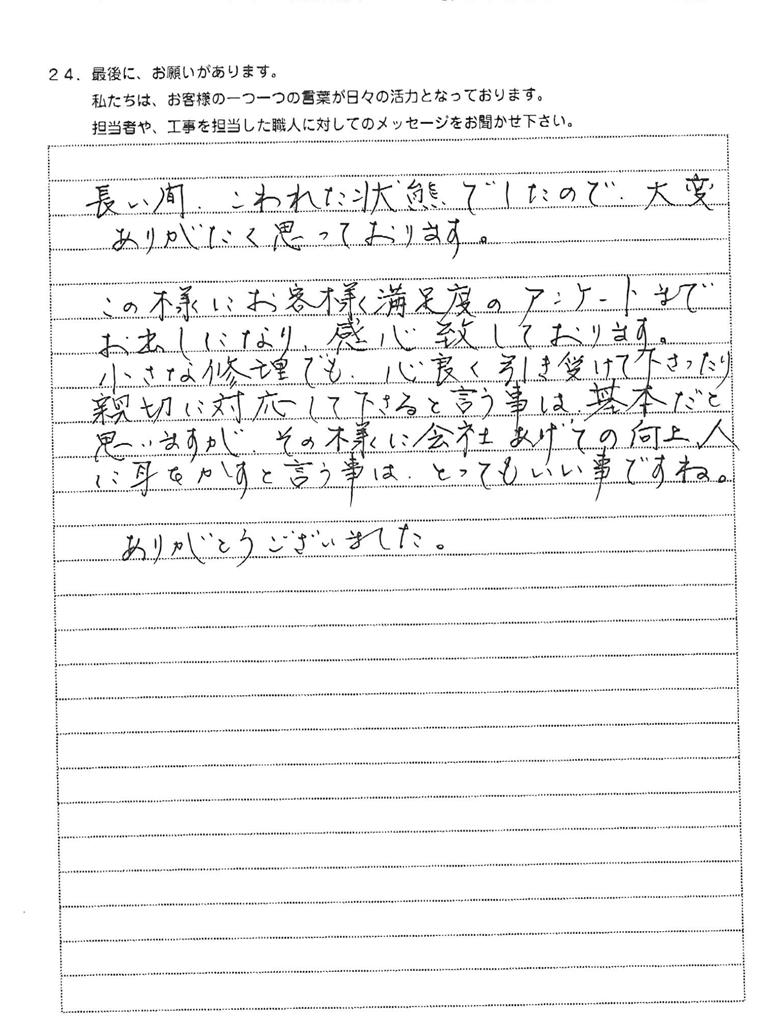 24．最後に、お願いがあります。
私たちは、お客様の一つ一つの言葉が日々の活力となっております。
担当者や、工事を担当した職人に対してのメッセージをお聞かせ下さい。
長い間、こわれた状態でしたので、大変
ありがたく思っております。
この様にお客様満足度のアンケートまで
お出しになり、感心致しております。
小さな修理でも、心良く引き受けて下さったり
親切に対応して下さると言う事は、基本だと
思いますが、その様に会社あげての向上、人
に耳をかすと言う事は、とってもいい事ですね。
ありがとうございました。